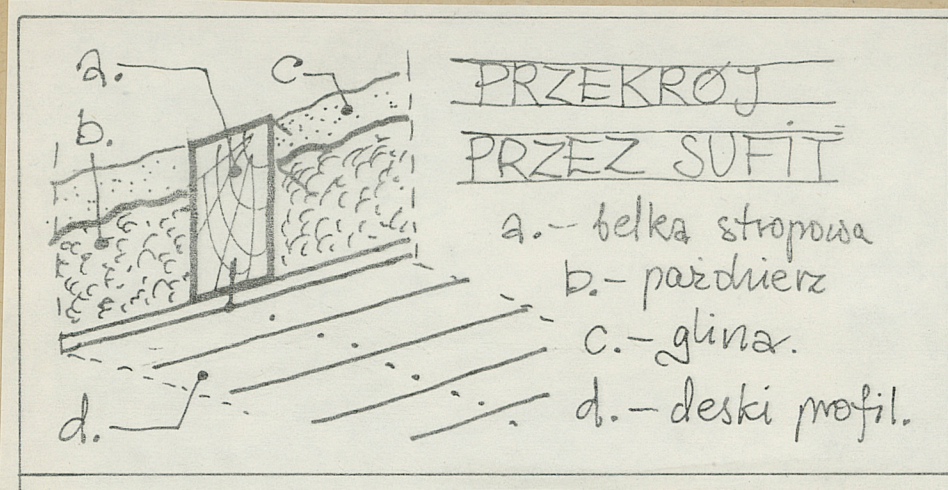 a.
c
b.
d.
PRZEKRÓJ
PRZEZ SUFIT
a.- belka stropowa
b.- paździerz
c.- glina.
d.- deski profil.